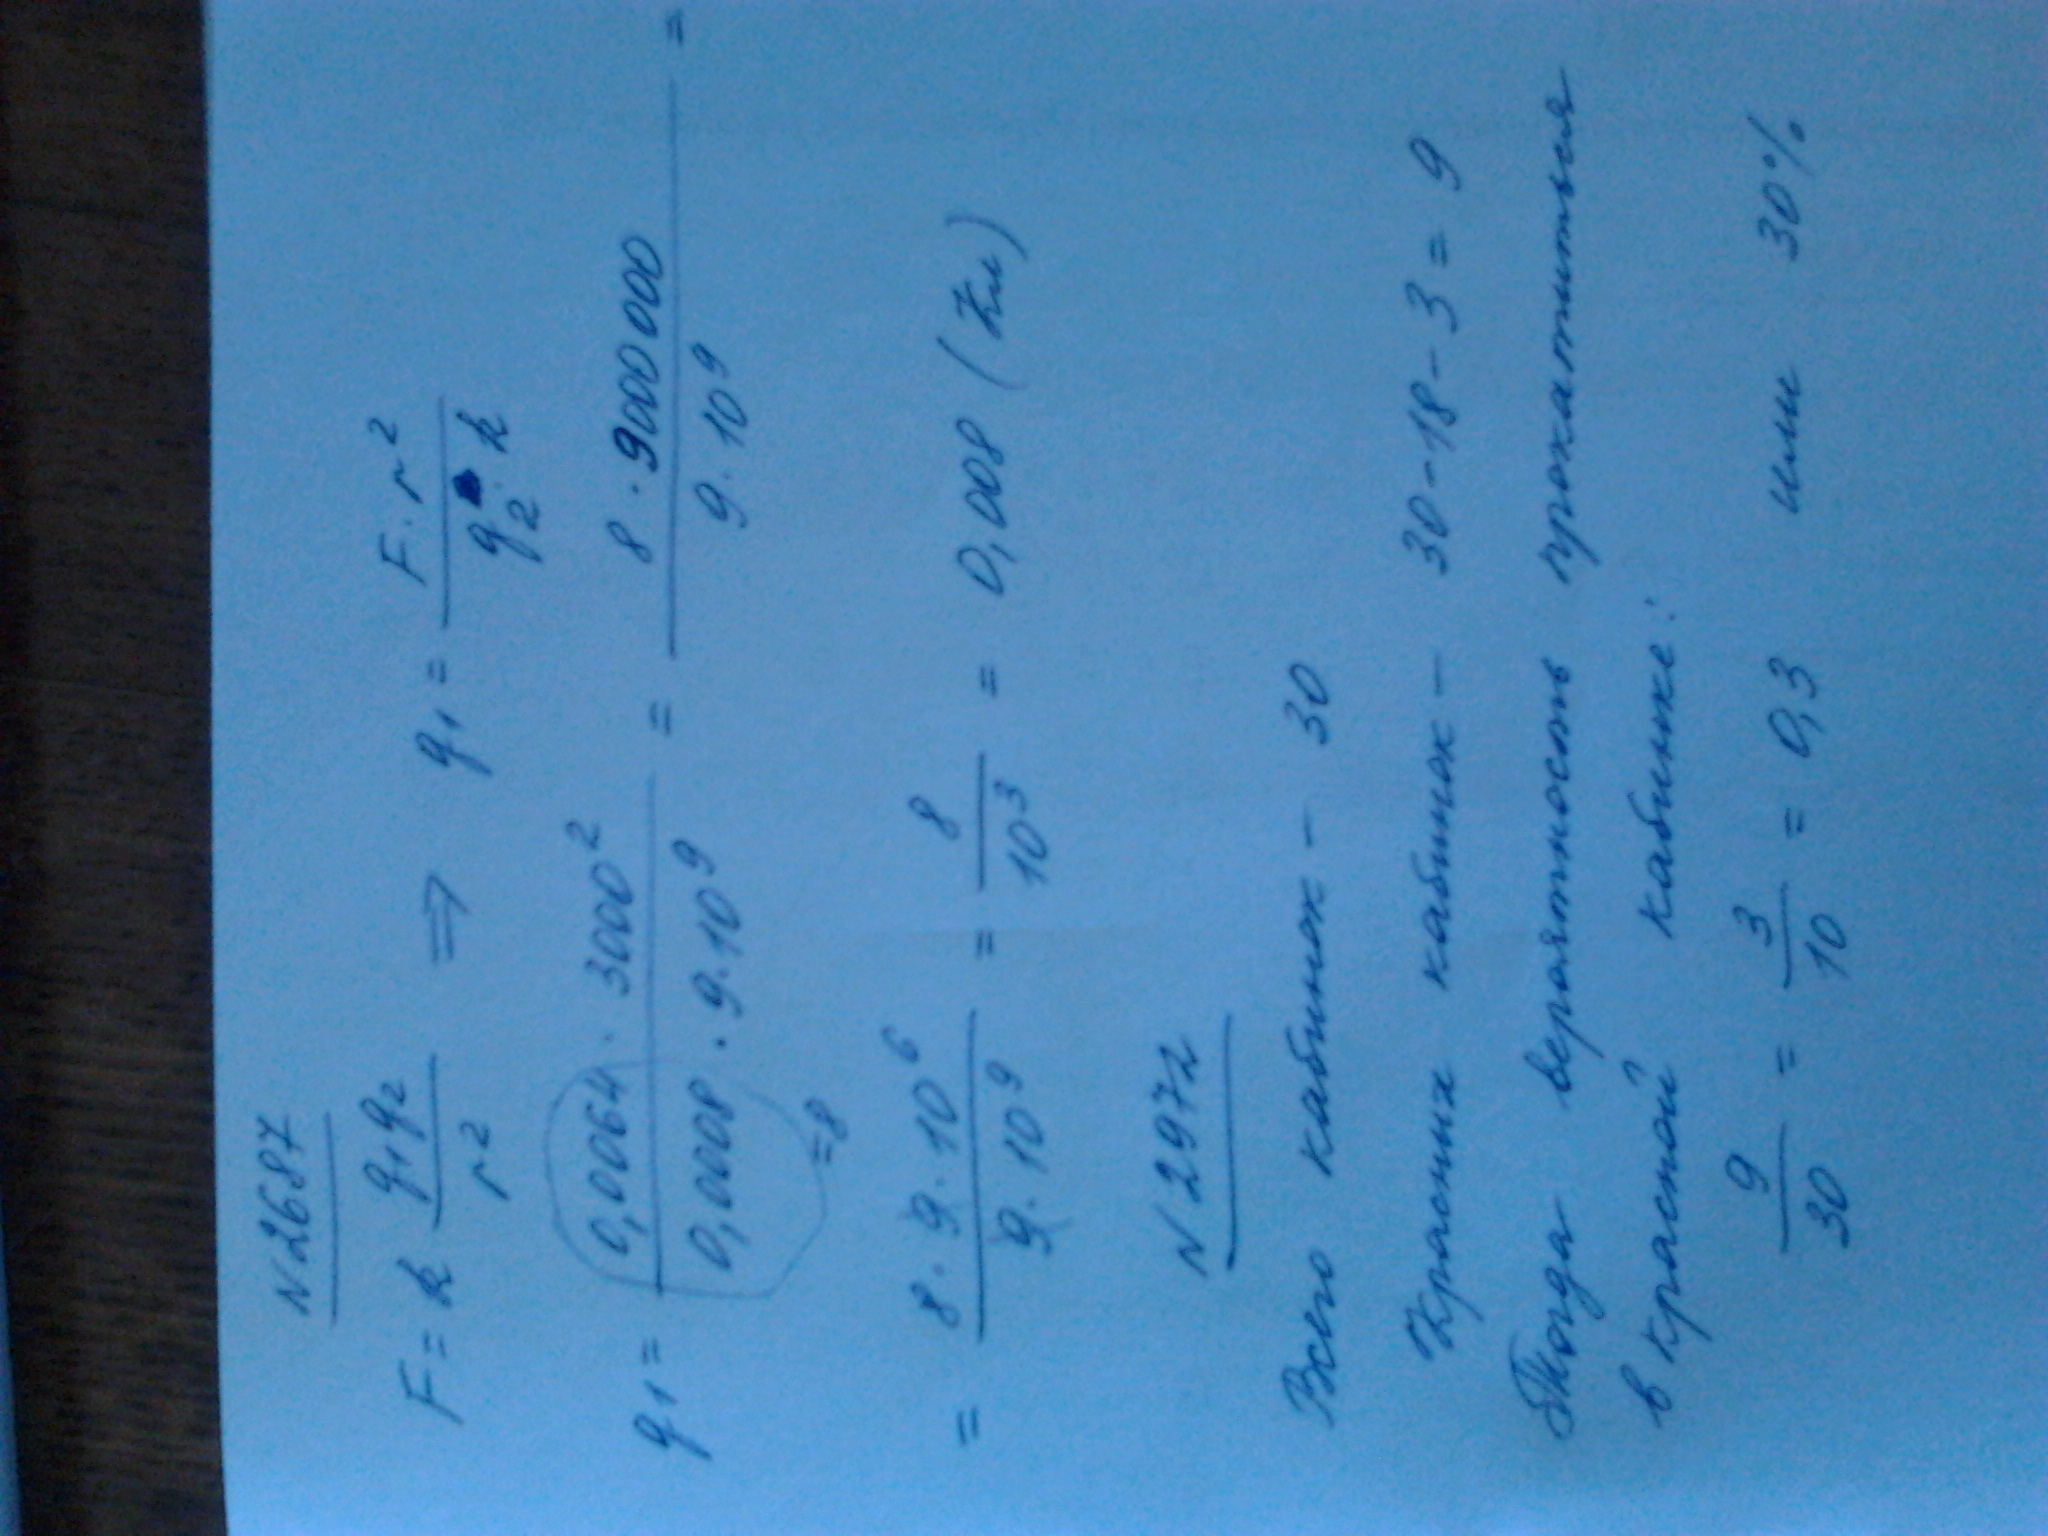 N 2687
F = k q₁q₂/r² ⇒ q₁ = F·r²/q₂·k
q₁ = 0,0064 · 3000²/0,0008 · 9·10⁹ = 8 · 9000 000/9·10⁹ =
=8
= 8·9·10⁶/9·10⁹ = 8/10³ = 0,008 (Кл)
N 2972
Всего кабинок – 30
Красных кабинок – 30-18-3 = 9
Тогда вероятность прокатиться
в красной кабинке:
9/30 = 3/10 = 0,3 или 30%